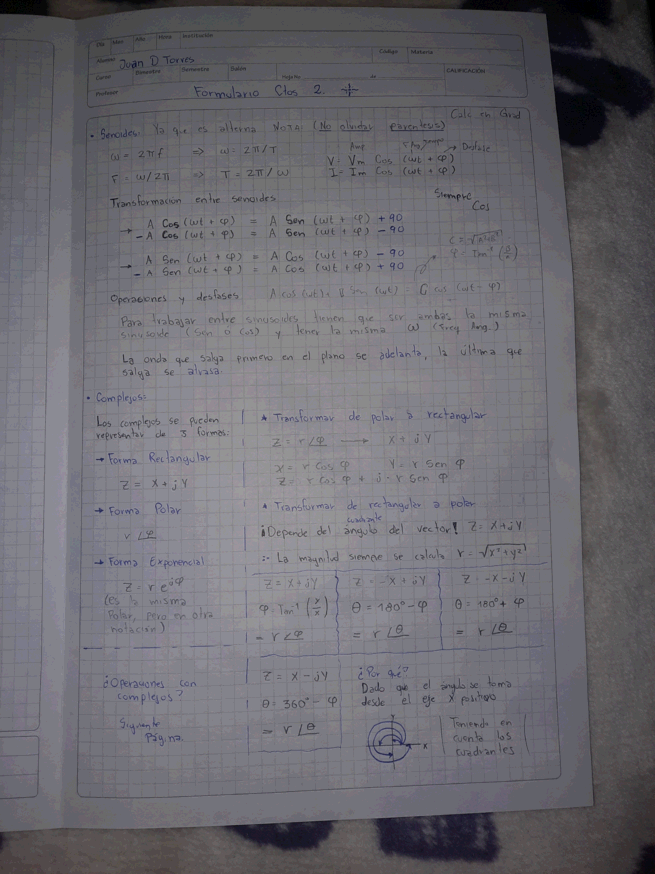 Día Mes Año Hora Institución
Alumno Joan D Torres Código Materia
Curso Bimestre Semestre Salón Hoja No. de CALIFICACIÓN
Profesor Formulario Ctos 2.
Calc en Grad
• Senoides: Ya que es alterna NOTA: (No olvidar parentesis)
ω = 2πf ⇒ ω = 2π/T V = Vm Cos (ωt + φ) → Desfase
f = ω/2π ⇒ T = 2π/ω I = Im Cos (ωt + φ)
Transformación entre senoides Siempre
Cos
→ A Cos (ωt + φ) = A Sen (ωt + φ) + 90
- A Cos (ωt + φ) = A Sen (ωt + φ) - 90
→ A Sen (ωt + φ) = A Cos (ωt + φ) - 90
- A Sen (ωt + φ) = A Cos (ωt + φ) + 90
Operaciones y desfases A cos (ωt) + B Sen (ωt) = C cos (ωt - φ)
Para trabajar entre sinusoides tienen que ser ambas la misma
sinusoide (Sen o Cos) y tener la misma ω (Freq Ang.)
La onda que salga primero en el plano se adelanta, la última que
salga se atrasa.
• Complejos:
Los complejos se pueden
representar de 3 formas:
→ Forma Rectangular
Z = X + jY
→ Forma Polar
r ∠φ
→ Forma Exponencial
Z = r e^jφ
(es la misma
Polar, pero en otra
notación)
Transformar de polar a rectangular
Z = r ∠φ → X + jY
x = r Cos φ Y = r Sen φ
Z = r Cos φ + j · r Sen φ
Transformar de rectangular a polar
cuadrante
¡Depende del ángulo del vector! Z = X+jY
∴ La magnitud siempre se calcula r = √x²+y²
Z = X+jY Z = -X + jY Z = -X-jY
θ = 180° - φ θ = 180° + φ
= r ∠φ = r ∠θ = r ∠θ
¿Operaciones con
complejos?
Siguiente
Página.
Z = X - jY
θ = 360° - φ
= r ∠θ
¿Por qué?
Dado que el ángulo se toma
desde el eje X positivo
Y
X
Teniendo en
cuenta los
cuadrantes